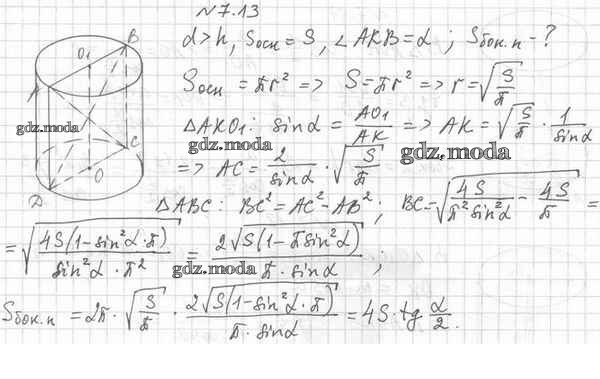 №7.13
d>h, Sосн = S, ∠AKB = α ; Sбок.п - ?
Sосн = πr² => S = πr² => r = √(S/π)
ΔAKO₁: sinα = AO₁/AK => AK = √(S/π) · 1/sinα
=> AC = 2/sinα · √(S/π)
ΔABC: BC² = AC² - AB² ; BC = √(4S/(π² sin²α) - 4S/π) =
= √(4S(1-sin²α·π)/(sin²α·π²)) = 2√(S(1-πsin²α))/(π·sinα) ;
Sбок.п = 2π · √(S/π) · 2√(S(1-sin²α·π))/(π·sinα) = 4S·tg α/2.
B
O₁
A
K
C
O
D
gdz.moda
gdz.moda
gdz.moda
gdz.moda